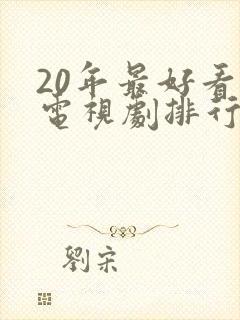 20年最好看
電視劇排行
劉宋